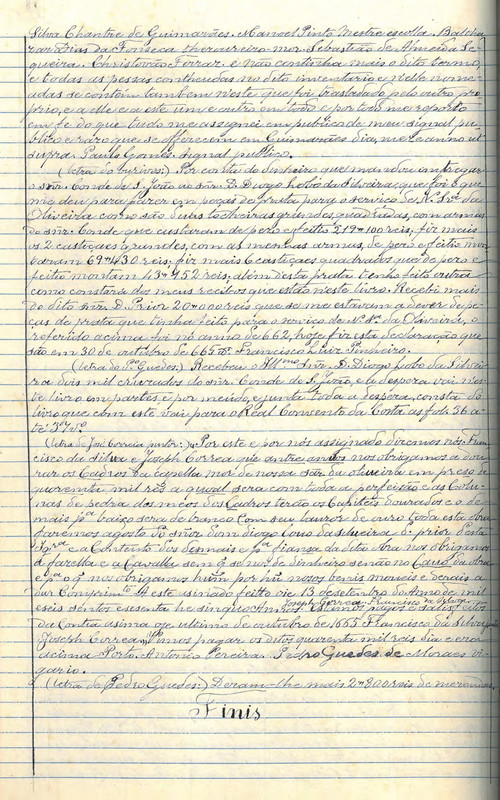 Silva Chantre de Guimarães. Manoel Pinto Mestre escolla. Baltha
zar Dias da Fonseca thezoureiro-mor. Sebastião de Almeida Se
queira. Christovão Ferraz. e não continha mais o dito termo,
e todas as pessas contheudas no dito inventario e n'elle nome
adas se contém tambem neste que foi trasladado pelo outro pro
prio, e a elle e a este um e outro em todo e por todo me reporto
em fé do que tudo me assignei em publico de meu signal pu
blico e razo que se offerecem em Guimarães dia, mez e anno ut
supra. Paulo Gomes. Signal publico.
(letra do ourives:) Por conta do dinheiro que mandou entregar
o snr. Conde de S. João ao snr. D. Diogo Lobo da Silveira, que foi o que
me deu para fazer em peças de prata para o serviço de N. Snra. da
Oliveira como são duas tocheiras grandes, quadradas, com armas
do snr. Conde que custaram de pezo e feitio 219100 reis; fiz mais
os 2 castiçaes grandes, com as mesmas armas, de pezo e feitio mon
taram 69430 reis; fiz mais 6 castiçaes quadrados que de pezo e
feitio montam 43952 reis; além desta prata tenho feito outra
como constará dos meus recibos que estão neste livro. Recebi mais
do dito snr. D. Prior 20000 reis que se me estavam a dever de pe
ças de prata que tinha feito para o serviço de N. Sra. da Oliveira, o
referido acima foi no anno de 662, hoje fiz esta declaração que
são em 30 de outubro de 665. Francisco Luiz Pinheiro.
(letra do Pro Guedes:) Recebeu o Illmo Snr. D. Diogo Lobo da Silvei
ra dois mil cruzados do snr. Conde de S. João, e a despeza vai nes
te livro em partes e por meúdo, e junta toda a despeza, consta do
livro que com este vai para o Real Convento da Costa as fols 36 a
té 37 vo.
(letra de José Correia pintor:) Por este e por nós assignado dizemos nós Fran
cisco da Silva e Joseph Correa que entre ambos nos obrigamos a dou
rar os Cadros da Capella mor de nossa Sara da oliveira em preso de
quorenta mil rs a quoal sera com toda a perfeisão e as Colu
nas de pedra dos meos dos Cadros terão os Capiteis dourados e o de
mais pa baixo sera de branco Com seu lauror de ouro toda esta obra
daremos a gosto do snor dom diogo Lobo da silveira d. prior desta
Igra e a Contento dos demais e pa fiansa da dita obra nos obrigamos
a fazella e a Cavalla sem q se nos de dinheiro senão no Cavo da obra
e pa o q nos obrigamos hum por hũ nosos benis mouais e derais a
dar Comprimto. A este asinado feito oie 13 de setembro do Anno de mil
e seis sentos e sesenta he sinquo Annos. Joseph Correa, Francisco da Silva.
da Contia asima oje ultimo de outubro de 1665 Francisco da Silva
Joseph Correa. Vimos pagar os ditos quarenta mil reis dia e era
acima Porto. Antonio Pereira. Pedro Guedes de Moraes vi
gario.
(letra de Pedro Guedes:) Deram-lhe mais 2800 reis de merendas.
Finis